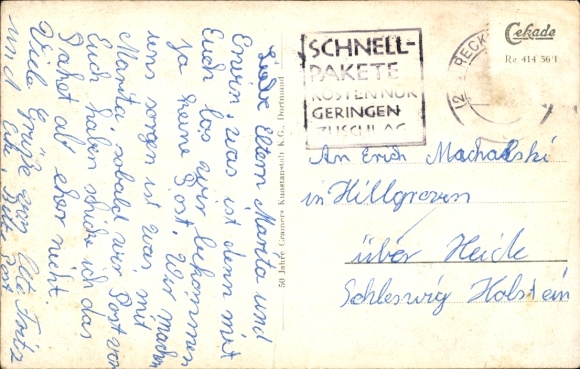 Liebe Eltern Marita und
Erwin. was ist denn mit
Euch los wir bekommen
ja keine Post. Wir machen
uns sorgen ist was mit
Marita, sobald wir Post von
Euch haben schicke ich das
Paket ab eher nicht.
Viele Grüße von Fritz
und
50 Jahre Cramers Kunstanstalt K.G., Dortmund
SCHNELL-
PAKETE
KOSTEN NUR
GERINGEN
ZUSCHLAG
Cekade
Re 414 56/1
An Erich Machalski
in Hillgroven
über Heide
Schleswig Holstein